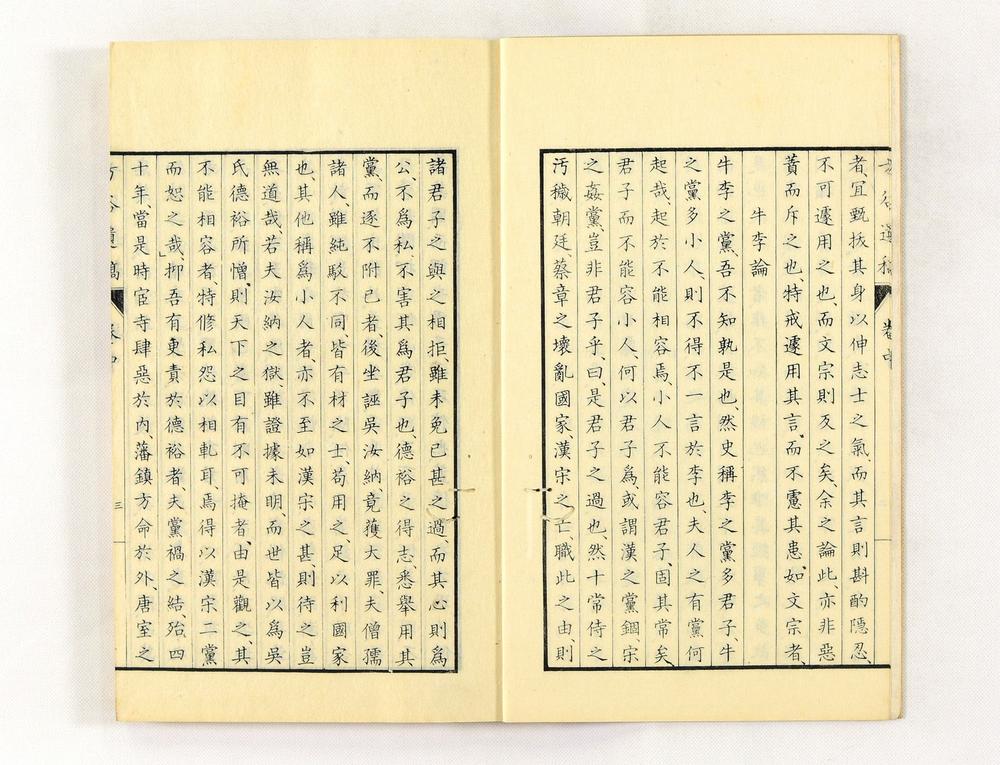 者、宜甄拔其身以伸志士之氣、而其言則斟酌隱忍、
不可遽用之也、而文宗則反之矣、余之論此、亦非惡
蕡而斥之也、特戒遽用其言、而不慮其患、如文宗者、
牛李論
牛李之黨、吾不知孰是也、然史稱李之黨多君子、牛
之黨多小人、則不得不一言於李也、夫人之有黨何
起哉、起於不能相容焉、小人不能容君子、固其常矣、
君子而不能容小人、何以君子爲、或謂漢之黨錮、宋
之姦黨、豈非君子乎、曰、是君子之過也、然十常侍之
汚穢朝廷、蔡章之壞亂國家、漢宋之亡、職此之由、則
卷中
諸君子之與之相拒、雖未免已甚之過、而其心則爲
公、不爲私、不害其爲君子也、德裕之得志、悉舉用其
黨、而逐不附己者、後坐誣吳汝納、竟獲大罪、夫僧孺
諸人、雖純駁不同、皆有材之士、苟用之、足以利國家
也、其他稱爲小人者、亦不至如漢宋之甚、則待之豈
無道哉、若夫汝納之獄、雖證據未明、而世皆以爲吳
氏德裕所憎、則天下之目有不可掩者、由是觀之、其
不能相容者、特修私怨以相軋耳、焉得以漢宋二黨
而恕之哉、抑吾有更責於德裕者、夫黨禍之結、殆四
十年當是時宦寺肆惡於內、藩鎭方命於外、唐室之
三